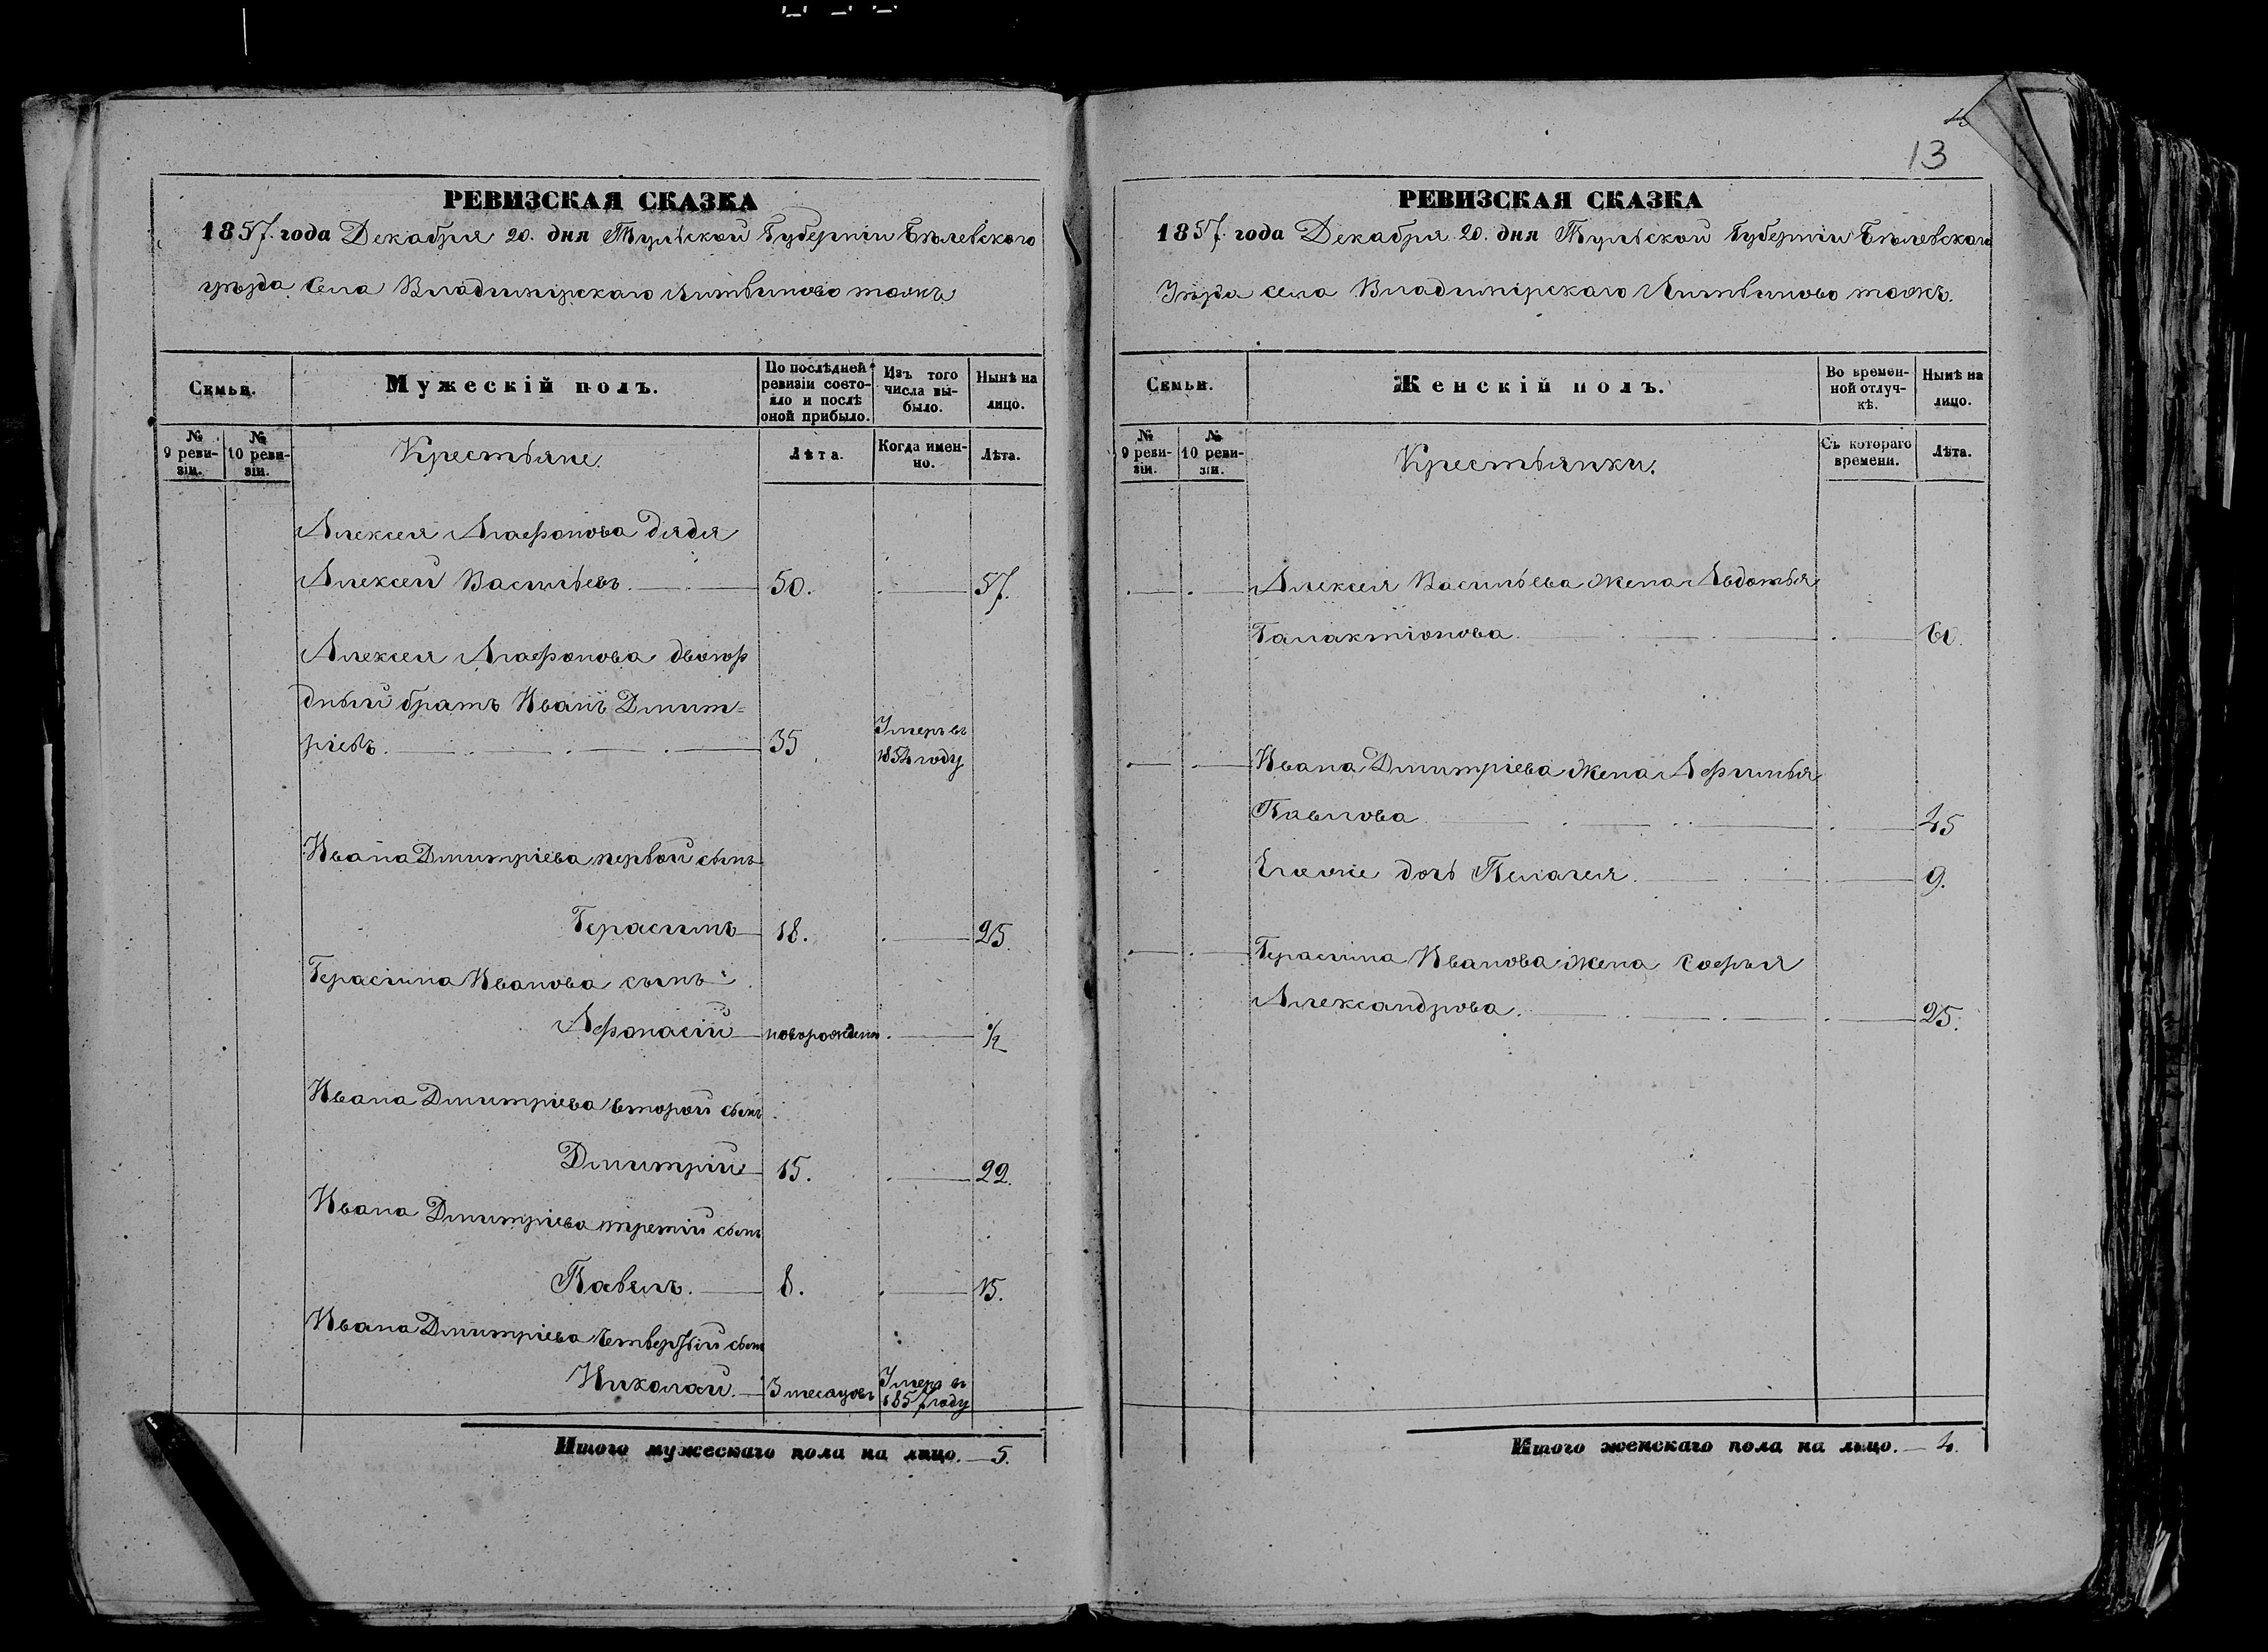 13
РЕВИЗСКАЯ СКАЗКА
1857. года Декабря 20. дня Тульской Губерніи Бѣлевского
уѣзда Села Владимірскаго Литвиново тожъ
Семьи.
Мужескій полъ.
По послѣдней ревизіи состояло и послѣ оной прибыло.
Изъ того числа выбыло.
Нынѣ на лицо.
№ 9 ревизіи.
№ 10 ревизіи.
Крестьяне.
Лѣта.
Когда именно.
Лѣта.
Алексея Агафонова дядя
Алексей Васильевъ. 50. 57.
Алексея Агафонова двоюр
дный братъ Иванъ Дмит=
ріевъ. 35 Умеръ въ
1854 году
Ивана Дмитріева первой сынъ
Герасимъ 18. 25.
Герасима Иванова сынъ
Афонасій новорожденъ ½
Ивана Дмитріева второй сынъ
Дмитрій 15. 22.
Ивана Дмитріева третій сынъ
Павелъ. 8. 15.
Ивана Дмитріева четвертый сынъ
Николай. 3 месяцовъ Умеръ въ
1857 году
Итого мужескаго пола на лицо. 5.
РЕВИЗСКАЯ СКАЗКА
1857. года Декабря 20. дня Тульской Губерніи Бѣлевскаго
Уѣзда села Владимірскаго Литвиново тожъ.
Семьи.
Женскій полъ.
Во временной отлучкѣ.
Нынѣ на лицо.
№ 9 ревизіи.
№ 10 ревизіи.
Крестьянки.
Съ котораго времени.
Лѣта.
Алексея Васильева жена Авдотья
Галактіонова.
Ивана Дмитріева жена Афимья
Павлова 45
Егожіе дочь Пелагея. 9.
Герасима Иванова жена Софья
Александрова. 25.
Итого женскаго пола на лицо. 4.